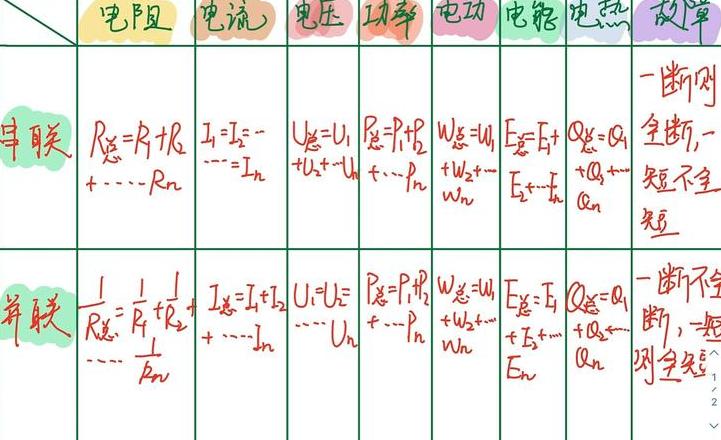 电阻 电流 电压 功率 电功 电能 电热 故障
串联
R总=R₁+R₂
+····Rn
I₁=I₂=··
····=In
U总=U₁
+U₂+··Un
P总=P₁+P₂
+···Pn
W总=W₁
+W₂+···
Wn
E总=E₁+
E₂+···En
Q总=Q₁
+Q₂+···
Qn
一断则
全断,一
短不全
短
并联
1/R总=1/R₁+1/R₂+
···· 1/Rn
I总=I₁+I₂
+····In
U₁=U₂=
···· Un
P总=P₁+P₂
+···Pn
W总=W₁
+W₂+···
Wn
E总=E₁
+E₂+···
En
Q总=Q₁
+Q₂+···
Qn
一断不全
断,一短
则全短
1
/
2